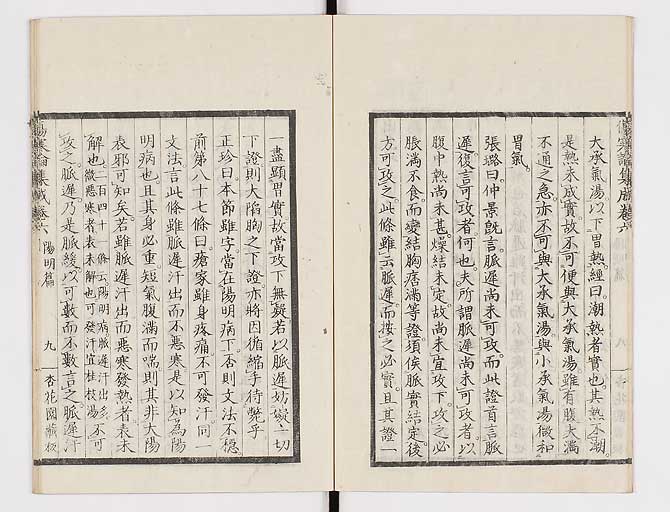 大承氣湯以下胃熱經曰潮熱者實也其熱不潮
是熱未成實故不可便與大承氣湯雖有腹大滿
不通之急亦不可與大承氣湯與小承氣湯微和
胃氣
張璐曰仲景既言脈遲尚未可攻而此證首言脈
遲復言可攻者何也夫所謂脈遲尚未可攻者以
腹中熱尚未甚燥結未定故尚未宜攻下攻之必
脹滿不食而變結胸痞滿等證須俟脈實結定後
方可攻之此條雖云脈遲而按之必實且其證一
一盡顯胃實故當攻下無疑若以脈遲妨礙一切
下證則大陷胸之下證亦將因循縮手待斃乎
正珍曰本節雖字當在陽明病下否則文法不穩
前第八十七條曰瘡家雖身疼痛不可發汗同一
文法言此條雖脈遲汗出而不惡寒是以知為陽
明病也且其身必重短氣腹滿而喘則其非太陽
表邪可知矣若雖脈遲汗出而惡寒發熱者表未
解也二百四十一條云陽明病脈遲汗出多不可微惡寒者表未解也可發汗宜桂枝湯可
攻之脈遲乃是脈緩以可數而不數言之脈遲汗
傷寒論集成卷六
陽明篇
九
杏花園藏板